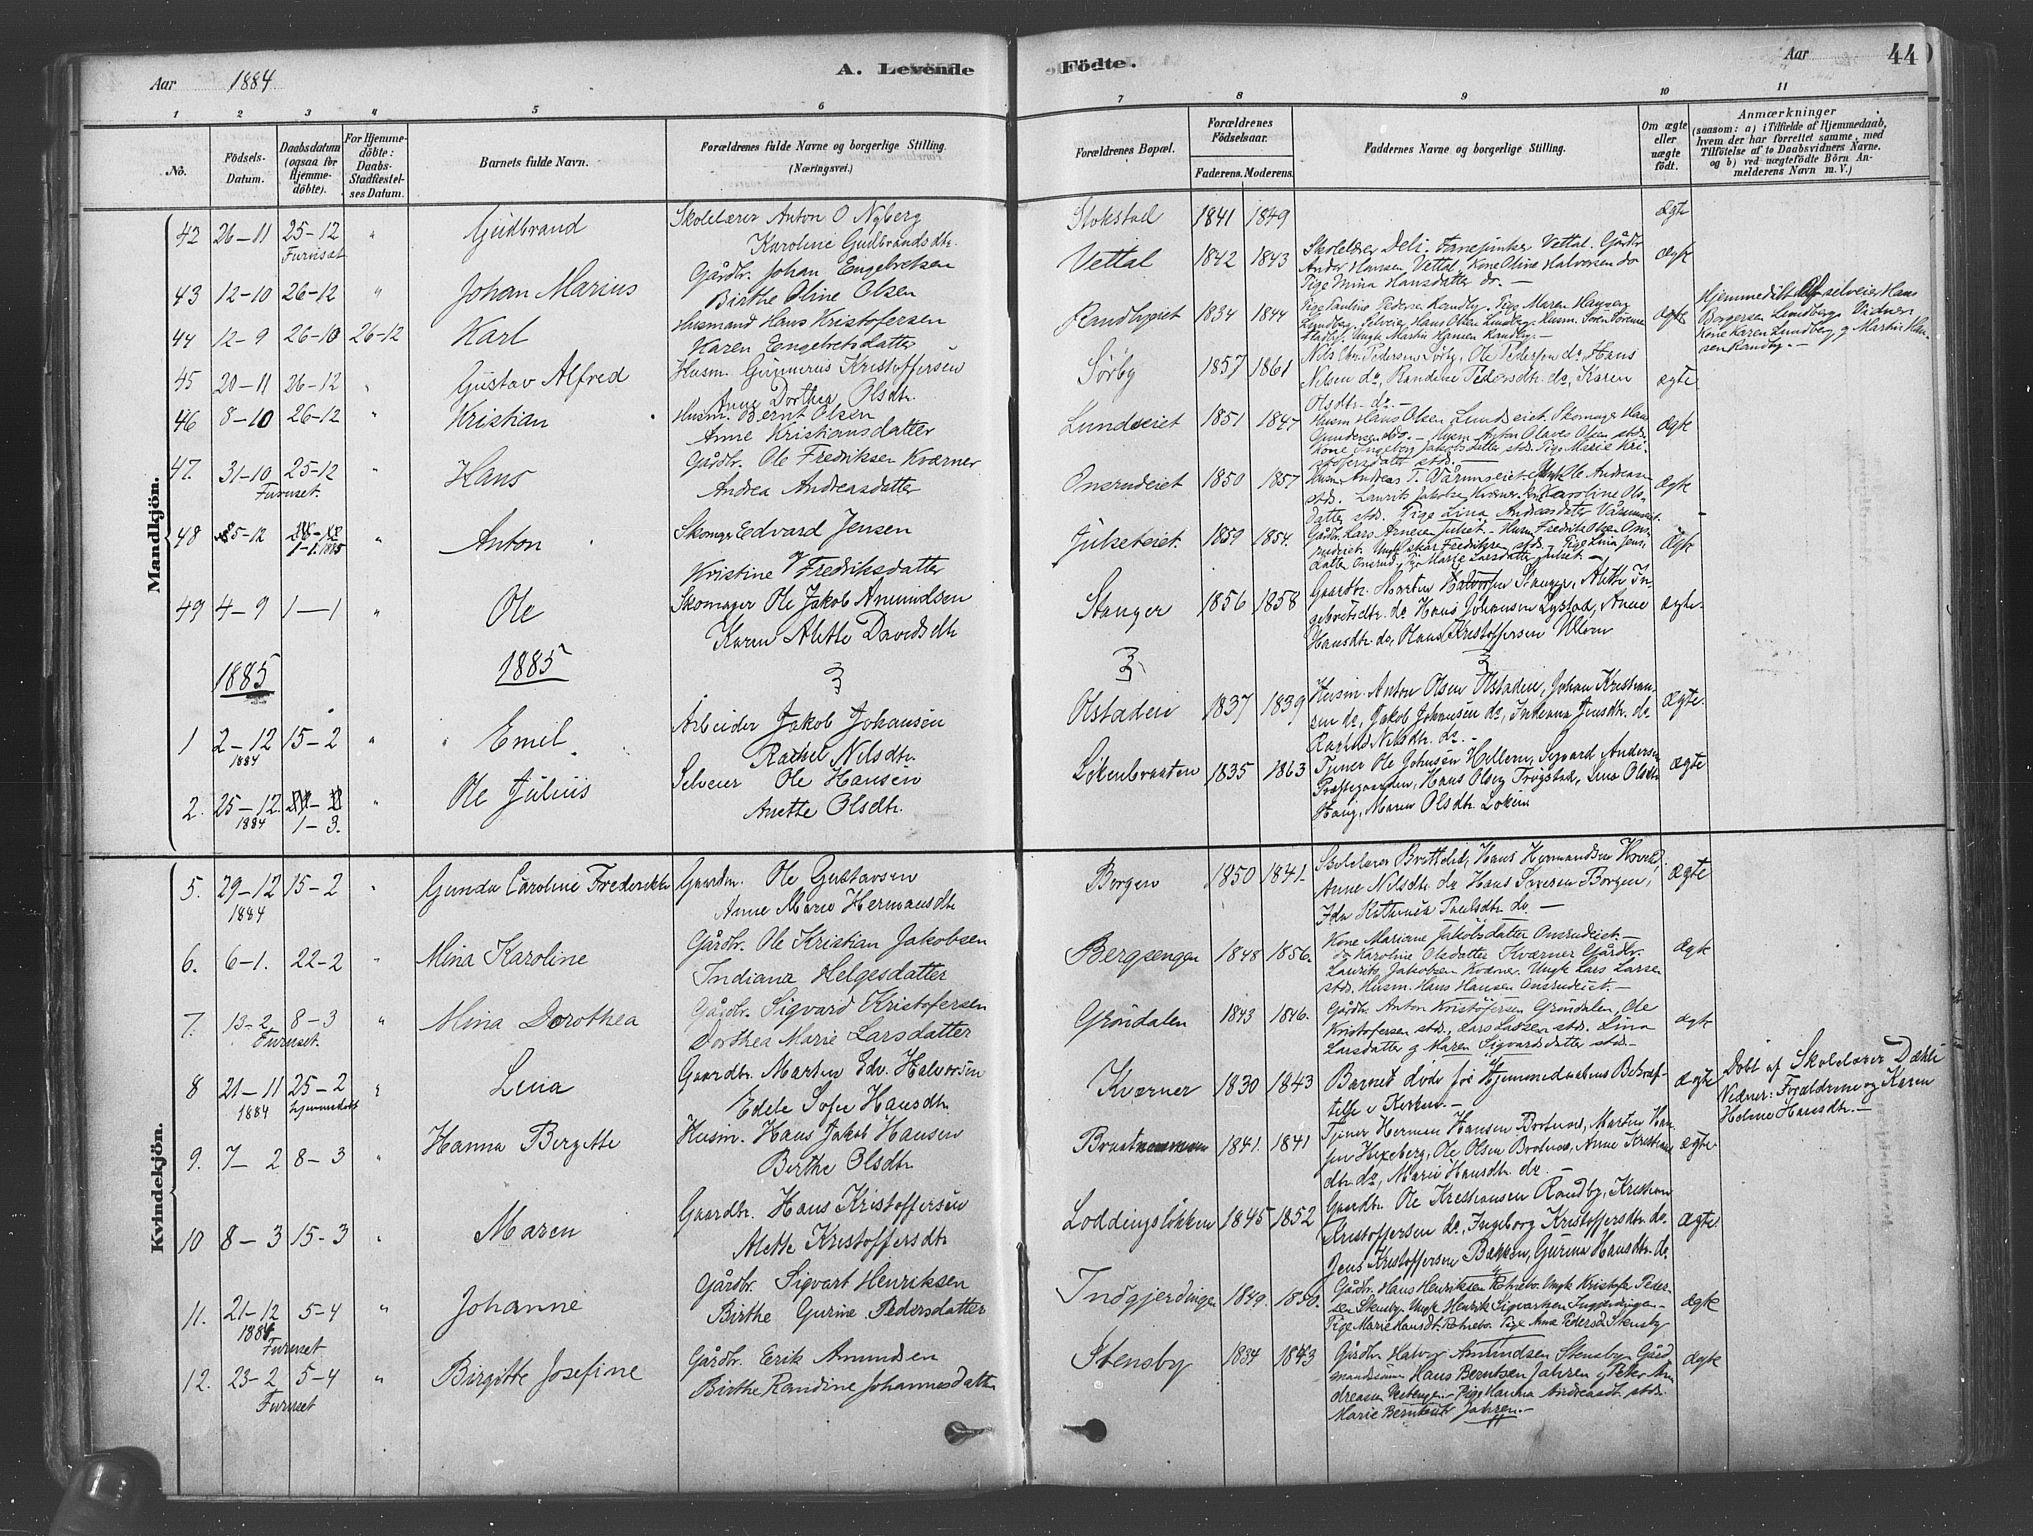 Aar 1884 A. Levende Födte. Aar 44
1 2 3 4 5 6 7 8 9 10 11
No. Födsels-Datum. Daabsdatum (ogsaa for Hjemmedöbte). For Hjemmedöbte: Daabs-Stadfæstelses Datum. Barnets fulde Navn. Forældrenes fulde Navne og borgerlige Stilling. (Næringsvei.) Forældrenes Bopæl. Forældrenes Födselsaar. Faderens. Moderens. Faddernes Navne og borgerlige Stilling. Om ægte eller uægte födt. Anmærkninger (saasom: a) i Tilfælde af Hjemmedaab, hvem der har forrettet samme, med Tilföielse af to Daabsvidners Navne, og b) ved uægtefödte Börn Anmelderens Navn m. V.)
Mandkjön.
42 26-11 25-12 " Gudbrand Skolelærer Anton O Nyberg Stokstad 1841 1849 Ægte
Furuset Karoline Gudbrandsdtr.
43 12-10 26-12 " Johan Marius Gårdbr. Johan Engebretsen Vettal 1842 1843 Skolelærer Deli. Fanejunker Vettal. Gårdbr ægte
Birthe Oline Olsen Ander Hansen Vettal, Kone Oline Halvorsen do
Pige Mina Hansdatter do. —
44 12-9 26-10 26-12 Karl Husmand Hans Kristofersen Randbyeiet 1834 1844 Pige Pauline Pederse Randby. Pige Maren ægte Hjemmedöbt af selveier Hans
Karen Engebretsdatter Lundberg. Selveier Hans Olsen Lundberg. Husm. Borgersen Lundberg. Vidner
Ungk. Martin Hansen Randby. — Kone Karen Lundberg og Martin Hansen Randby. —
45 20-11 26-12 " Gustav Alfred Husm. Gunnerus Kristoffersen Sörby 1857 1861 Nils Chr. Pedersen Sörby, Ole Pedersen do, Hans ægte
Anne Dorthea Olsdtr. Nilsen do, Randine Pedersdtr. do, Karen
Olsdtr. do. —
46 8-10 26-12 " Kristian Husm. Bernt Olsen Lundseiet 1851 1847 Husm Hans Olsen Lundseiet. Skomager Hans ægte
Anne Kristiansdatter Gundersen do. — Husm Anton Olaves Olsen stds.
Kone Ingeborg Jakobsdatter stds. Pige Marie Kristofersdatter stds. —
47. 31-10 25-12 " Hans Gårdbr. Ole Fredriksen Kværner Onsrudeiet 1850 1857 Husm. Andreas T. Vårumseiet. Ungk Ole Andreasen ægte
Furuset. Andrea Andreasdatter stds. Laurits Jakobsen Kværner. Karoline Olsdatter stds. Pige Lina Andreasdatter
48 25-12 1-1 1885 " Anton Skomag. Edvard Jensen Julseteiet. 1859 1854. Gårdbr. Lars Julset. — Husm Fredrik Olsen Onsrudeiet. ægte
Kristine Fredriksdatter Fredriksen stds. — Pige Lina Jensdatter Onsrud, Pige Marie Larsdatter Julset —
49 4-9 1—1 " Ole Skomager Ole Jakob Amundsen Stanger 1856 1858 Gaardbr. Martin Halvorsen Stanger, Alette Ingebretsdtr. do Hans Johansen Lystad, Anne ægte.
Karen Alette Davidsdtr. Hansdtr. do, Hans Kristoffersen Ullern
1885 1885
1 2-12 1884 15-2 " Emil Arbeider Jakob Johansen Olstaden 1837 1839 Husm. Anton Olsen Olstaden, Johan Kristiansen do, Jakob Johansen do, Indeana Jensdtr. do ægte.
Rachel Nilsdtr. Rachel Nilsdtr. do. —
2. 25-12 1884 1-3. " Ole Julius Selveier Ole Hansen Lökenbraaten 1835 1863 Tjener Ole Johnsen Hellern, Sigvard Andersen ægte
Anette Olsdtr. Præstegaarden, Hans Olsen Trögstad, Lina Olsdtr
Haug, Maren Olsdtr. Löken
Kvindekjön.
5. 29-12 1884 15-2 " Gunda Caroline Frederikke Gaardm. Ole Gustavsen Borgen 1850 1841 Skolelærer Brettelid, Hans Hermandsen ægte
Anne Marie Hermansdtr. Anne Nilsdtr. do Hans Borgen,
Ida Katherina Paulsdtr. do. —
6. 6-1. 22-2 " Mina Karoline Gårdbr. Ole Kristian Jakobsen Bergsengen 1848 1856. Kone Mariane Jakobsdatter Onsrudeiet. — ægte
Indiana Helgesdatter do Karoline Olsdatter Kværner Gårdbr.
Laurits Jakobsen Kværner. Ungk Lars Larsen
stds. Husm. Hans Hansen Onsrudeiet. —
7. 13-2 8-3 " Mina Dorothea Gårdbr. Sigvard Kristofersen Gröndalen 1843 1846. Gårdbr. Anton Kristofersen Gröndalen, Ole ægte
Furuset. Dorthea Marie Larsdatter Kristofersen stds., Lars Larsen stds. Lina
Larsdatter og Maren Sigvardsdatter stds. —
8 21-11 1884 25-2 hjemmedöbt " Lina Gaardbr. Martin Edv. Halvorsen Kværner 1830 1843 Barnet döde för Hjemmedaabens Bekræftelse i Kirken. — ægte Döbt af Skolelærer Dæhli
Edele Sofie Hansdtr. Vidner: Forældrene og Karen
Holme Hansdtr. —
9. 7-2 8-3 " Hanna Bergitte Husm. Hans Jakob Hansen 1841. 1841 Tjener Herman Hansen Brotnes, Martin Hansen Hexeberg, Ole Olsen Brotnes, Anne ægte
Berthe Olsdtr. do, Marie Hansdtr. do. —
10 8-3 15-3 " Maren Gaardbr. Hans Kristoffersen Loddingslökken 1845 1852 Gaardbr. Ole Kristiansen Randby, Kristian ægte
Alette Kristoffersdtr. Kristoffersen do, Ingeborg Kristoffersdtr. do.
Jens Kristoffersen Bakken, Gurina Hansdtr. do
11. 21-12 1884 5-4 " Johanne Gårdbr. Sigvart Henriksen Indgjerdingen 1849. 1850. Gårdbr. Hans Henriksen Rotnebo. Ungk Kristofer Pedersen Stensby. Ungk Henrik Sigvartsen Inggjerdingen — ægte
Furuset Birthe Gurine Pedersdatter Pige Marie Hansdt. Rotnebo. Pige Anne Pedersd Stensby
12. 23-2 5-4 " Birgitte Josefine Gårdbr. Erik Amundsen Stensby 1834 1843 Gårdbr Halvor Amundsen Stensby. Gård ægte
Furuset Birthe Randine Johannesdatter Hans Berntsen Jahren, Peter Andreasen. Pige Hanna Andreasdt stds.
Marie Berntsdt Jahren. —